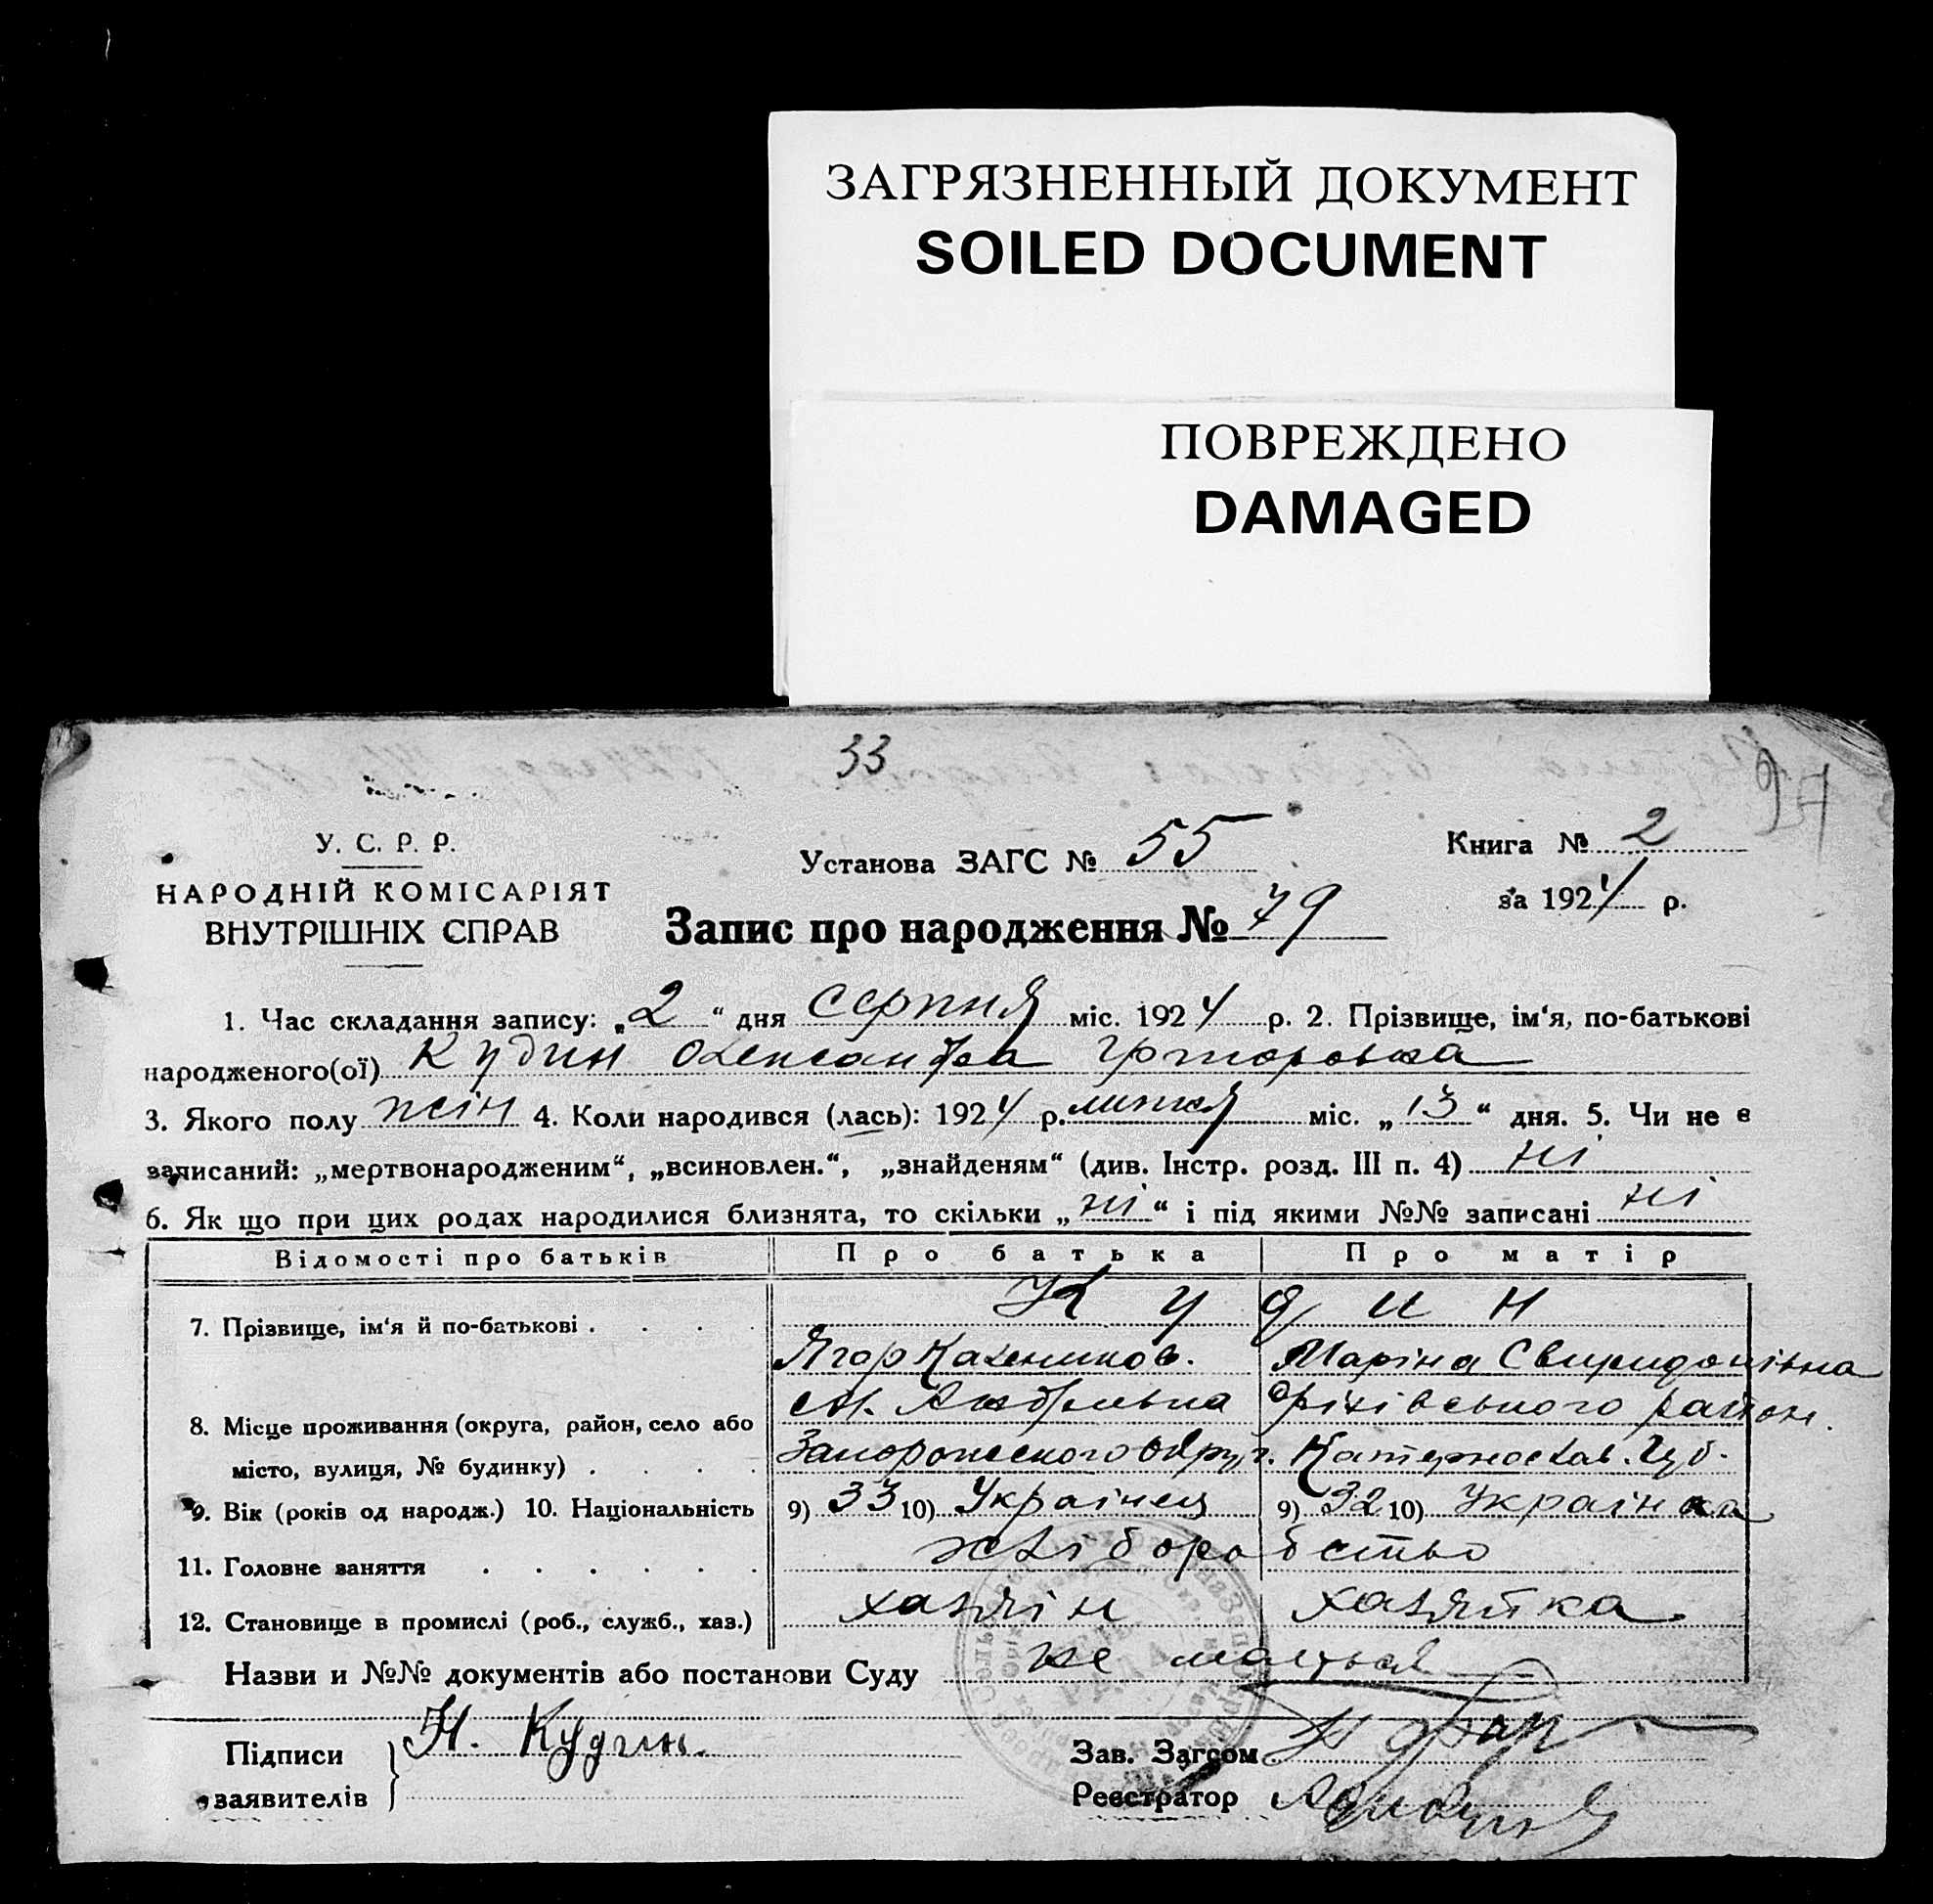 ЗАГРЯЗНЕННЫЙ ДОКУМЕНТ
SOILED DOCUMENT
ПОВРЕЖДЕНО
DAMAGED
33
27
У. С. Р. Р.
НАРОДНІЙ КОМІСАРІЯТ
ВНУТРІШНІХ СПРАВ
Установа ЗАГС № 55
Книга № 2
за 1924 р.
Запис про народження № 79
1. Час складання запису: „2“ дня серпня міс. 1924 р. 2. Прізвище, ім‘я, по-батькові
народженого(ої) Кудин Олександра
3. Якого полу жін 4. Коли народився (лась): 1924 р. липня міс. „13“ дня. 5. Чи не є
записаний: „мертвонародженим“, „всиновлен.“, „знайденям“ (див. Інстр. розд. III п. 4) ні
6. Як що при цих родах народилися близнята, то скільки „ні“ і під якими №№ записані ні
Відомості про батьків Про батька Про матір
7. Прізвище, ім‘я й по-батькові . . . . Кудин
Ягор Маріна Свиридонівна
8. Місце проживання (округа, район, село або
місто, вулиця, № будинку) . . . .
с. Оріхівського район.
Запорожского Округ. Катеринослав. Губ.
9. Вік (років од народж.) 10. Національність 9) 33 10) Українец 9) 32 10) Українка
11. Головне заняття . . . . . . хліборобство
12. Становище в промислі (роб., служб., хаз.) хазяїн хазяйка
Назви и №№ документів або постанови Суду не мається
Підписи
заявителів
Н. Кудин.
Зав. Загсом
Реєстратор